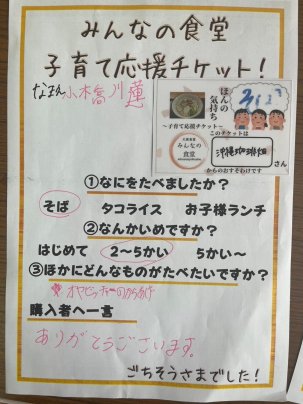 みんなの食堂
子育て応援チケット！
なまえ
ほんの
気持ち
～子育て応援チケット～
みんなの
食堂
このチケットは
沖縄珈琲畑
さん
からのおすそわけです
①なにをたべましたか？
そば タコライス お子様ランチ
②なんかいめですか？
はじめて 2～5かい 5かい～
③ほかにどんなものがたべたいですか？
オヤビッチャーのからあげ
購入者へ一言
ありがとうございます。
ごちそうさまでした！